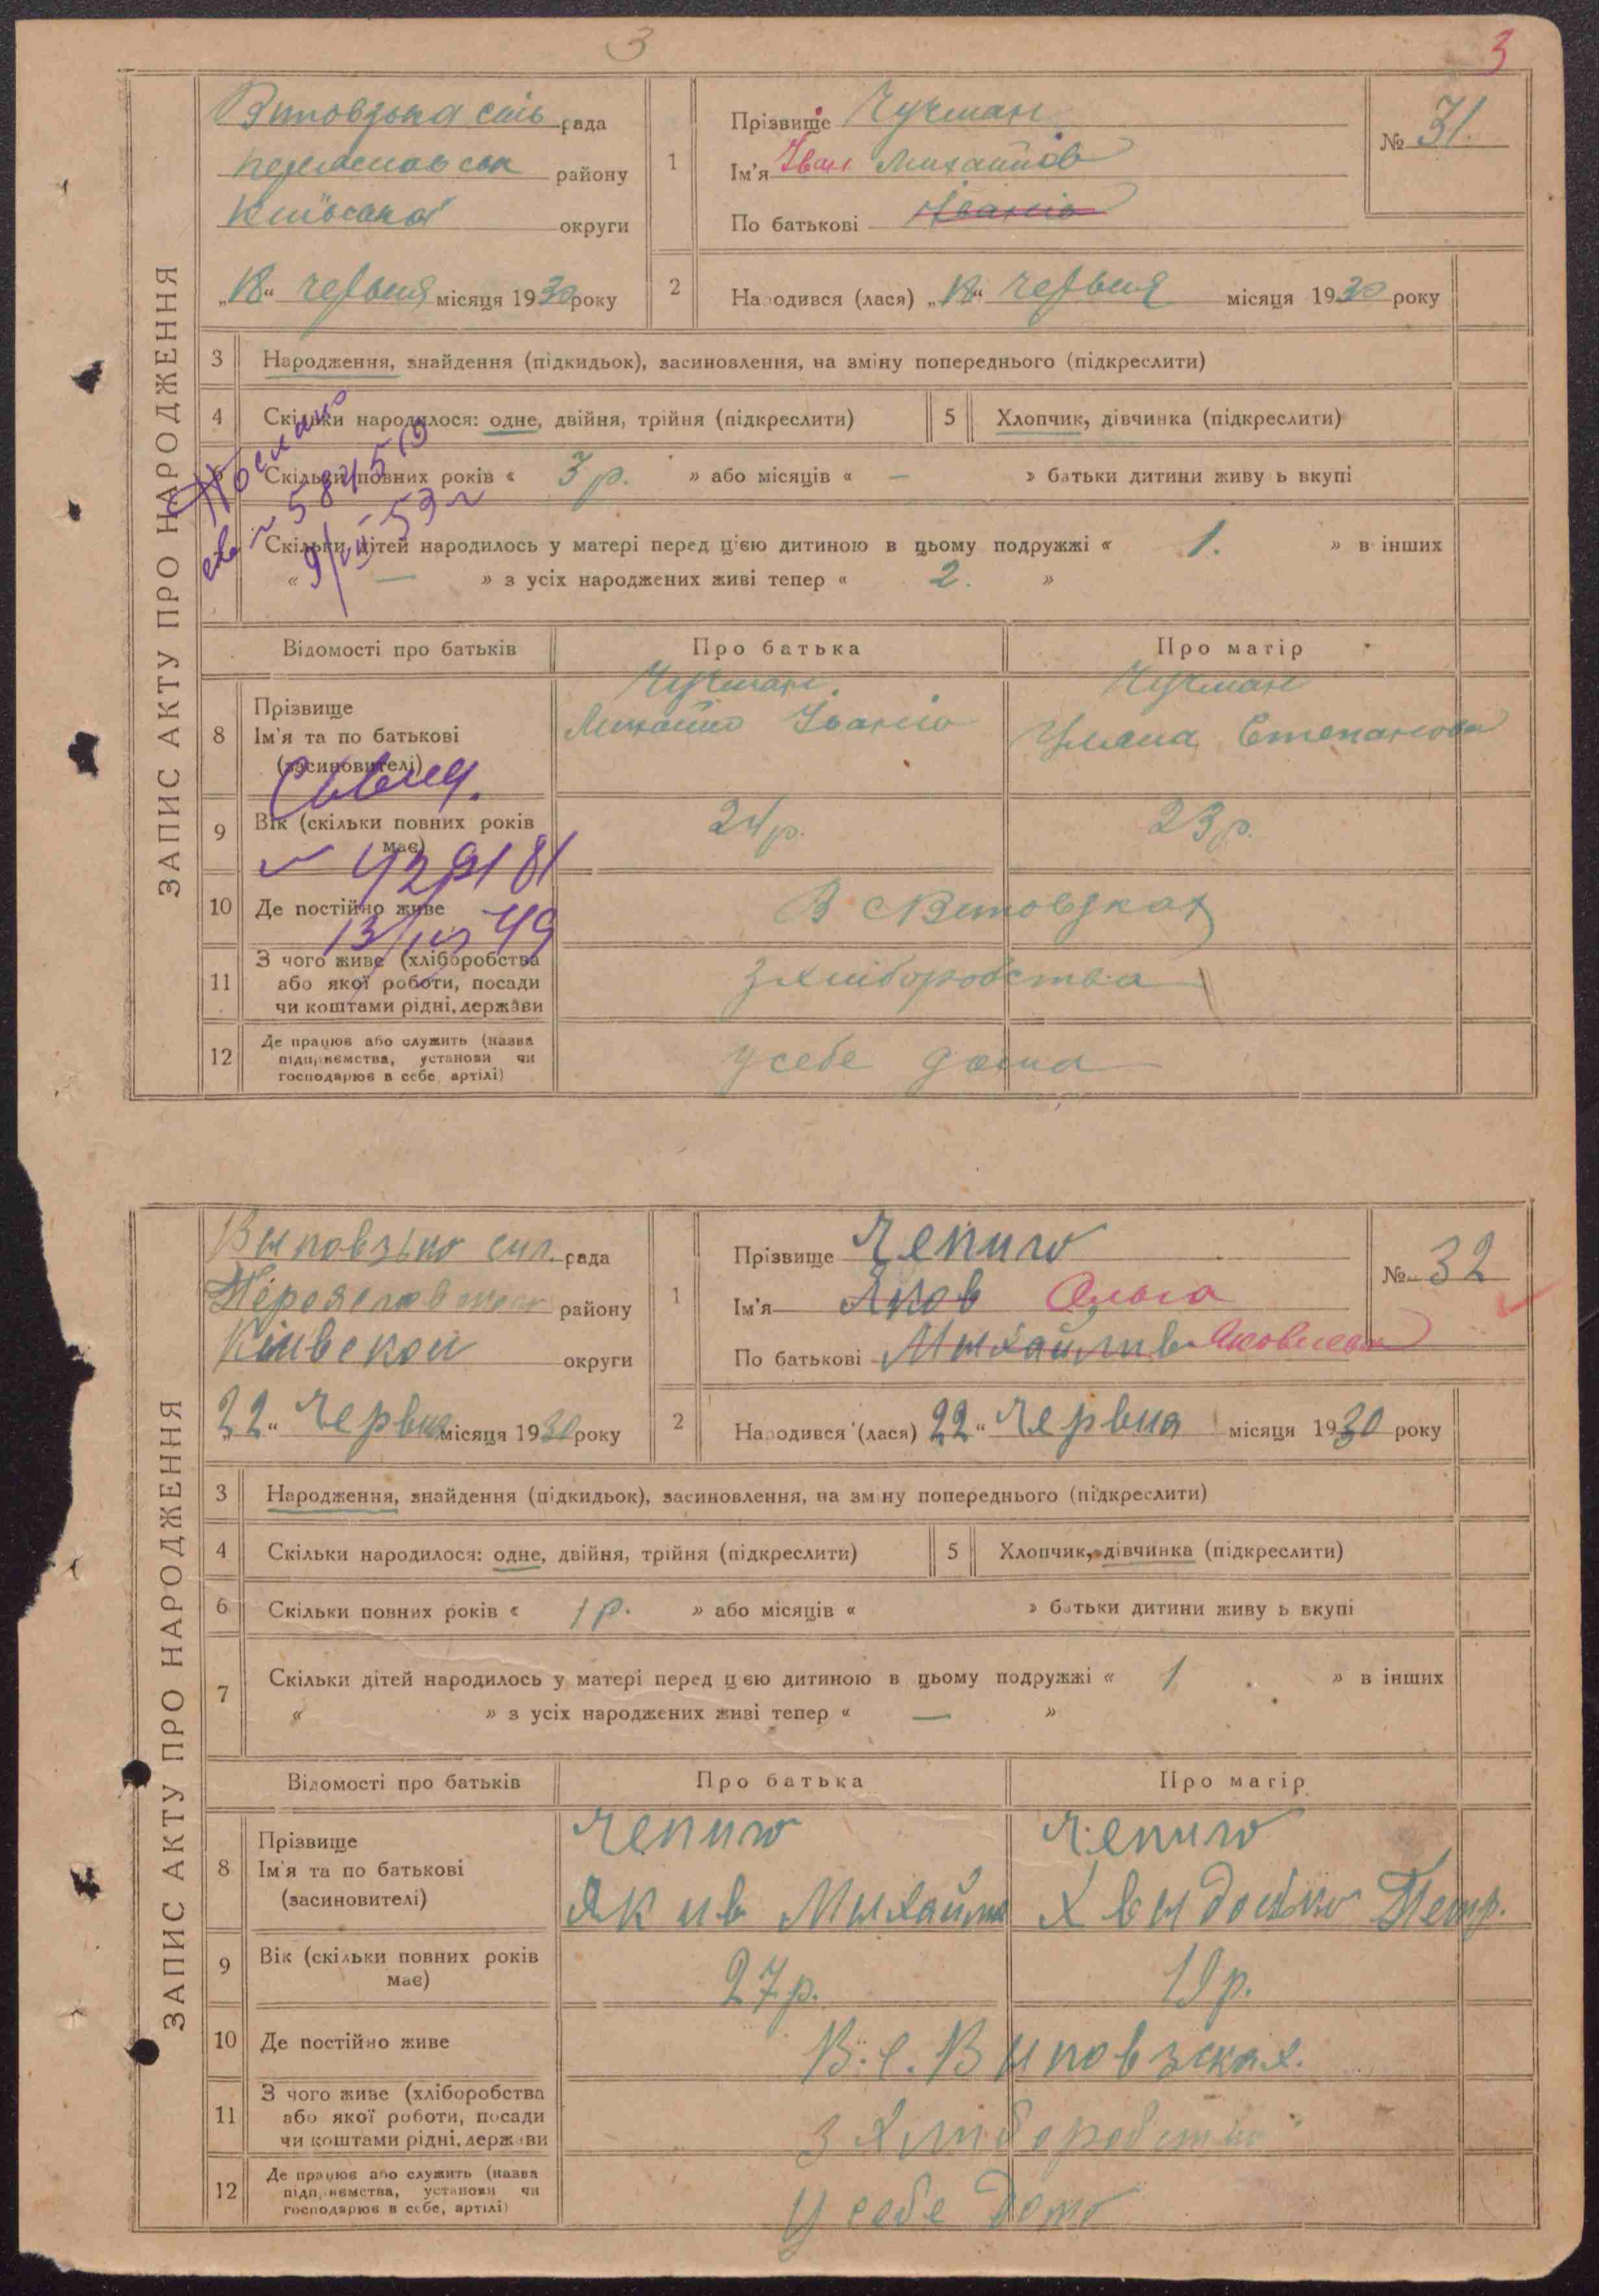 3
3
ЗАПИС АКТУ ПРО НАРОДЖЕННЯ
рада
району
Київської округи
„18“ червня місяця 1930 року
1
Прізвище Чучман
Ім'я Іван Михайлов
По батькові Івансів
№ 31.
2
Народився (лася) „18“ червня місяця 1930 року
3 Народження, знайдення (підкидьок), засиновлення, на зміну попереднього (підкреслити)
4 Скільки народилося: одне, двійня, трійня (підкреслити)
5 Хлопчик, дівчинка (підкреслити)
6 Скільки повних років « 3 р. » або місяців « — » батьки дитини живуть вкупі
Скільки дітей народилось у матері перед цією дитиною в цьому подружжі « 1. » в інших
« — » з усіх народжених живі тепер « 2. »
Відомості про батьків
Про батька
Про матір
8
Прізвище
Ім'я та по батькові
(засиновителі)
Чучман
Михайло Івансів
Чучман
Уляна Степансова
9
Вік (скільки повних років має)
24 р.
23 р.
10 Де постійно живе
11
З чого живе (хліборобства
або якої роботи, посади
чи коштами рідні, держави
з хліборобства
12
Де працює або служить (назва
підприємства, установи чи
господарює в себе, артілі)
у себе дома
ЗАПИС АКТУ ПРО НАРОДЖЕННЯ
Выповзько сил. рада
району
Киівской округи
„22“ Червня місяця 1930 року
1
Прізвище Чепиго
Ім'я Яков Ольга
По батькові Мыхайлив Яковлевна
№ 32
2
Народився (лася) 22“ Червня місяця 1930 року
3 Народження, знайдення (підкидьок), засиновлення, на зміну попереднього (підкреслити)
4 Скільки народилося: одне, двійня, трійня (підкреслити)
5 Хлопчик, дівчинка (підкреслити)
6 Скільки повних років « 1 р. » або місяців « » батьки дитини живуть вкупі
7 Скільки дітей народилось у матері перед цією дитиною в цьому подружжі « 1 » в інших
« » з усіх народжених живі тепер « — »
Відомості про батьків
Про батька
Про матір
8
Прізвище
Ім'я та по батькові
(засиновителі)
Чепиго
Якив Мыхайло
Чепиго
Хвыдосько Петр.
9
Вік (скільки повних років має)
27 р.
19 р.
10 Де постійно живе
В. с. Выповзсках.
11
З чого живе (хліборобства
або якої роботи, посади
чи коштами рідні, держави
12
Де працює або служить (назва
підприємства, установи чи
господарює в себе, артілі)
У себе Домо